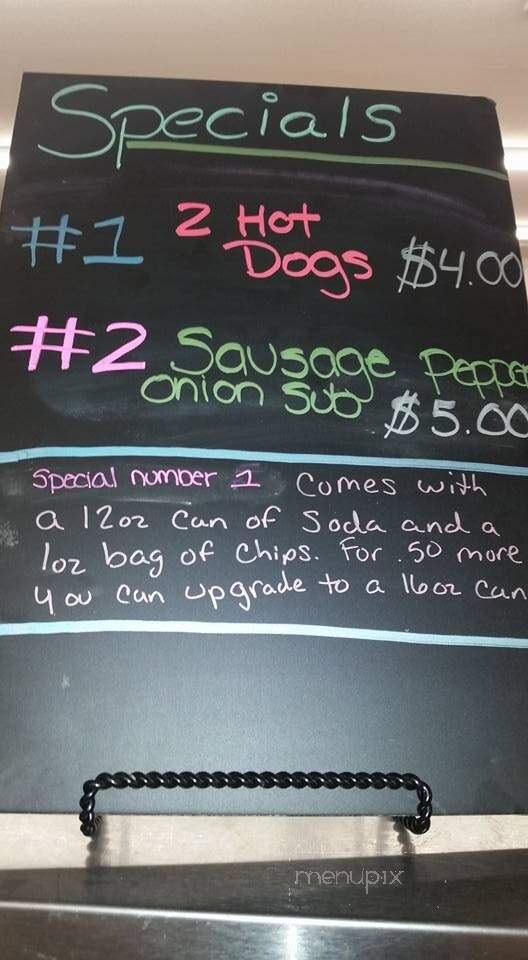 Specials
#1 2 Hot
Dogs $4.00
#2 Sausage Pepper
onion sub $5.00
Special number 1 Comes with
a 12oz Can of Soda and a
1oz bag of Chips. For .50 more
you can upgrade to a 16oz Can
menupix